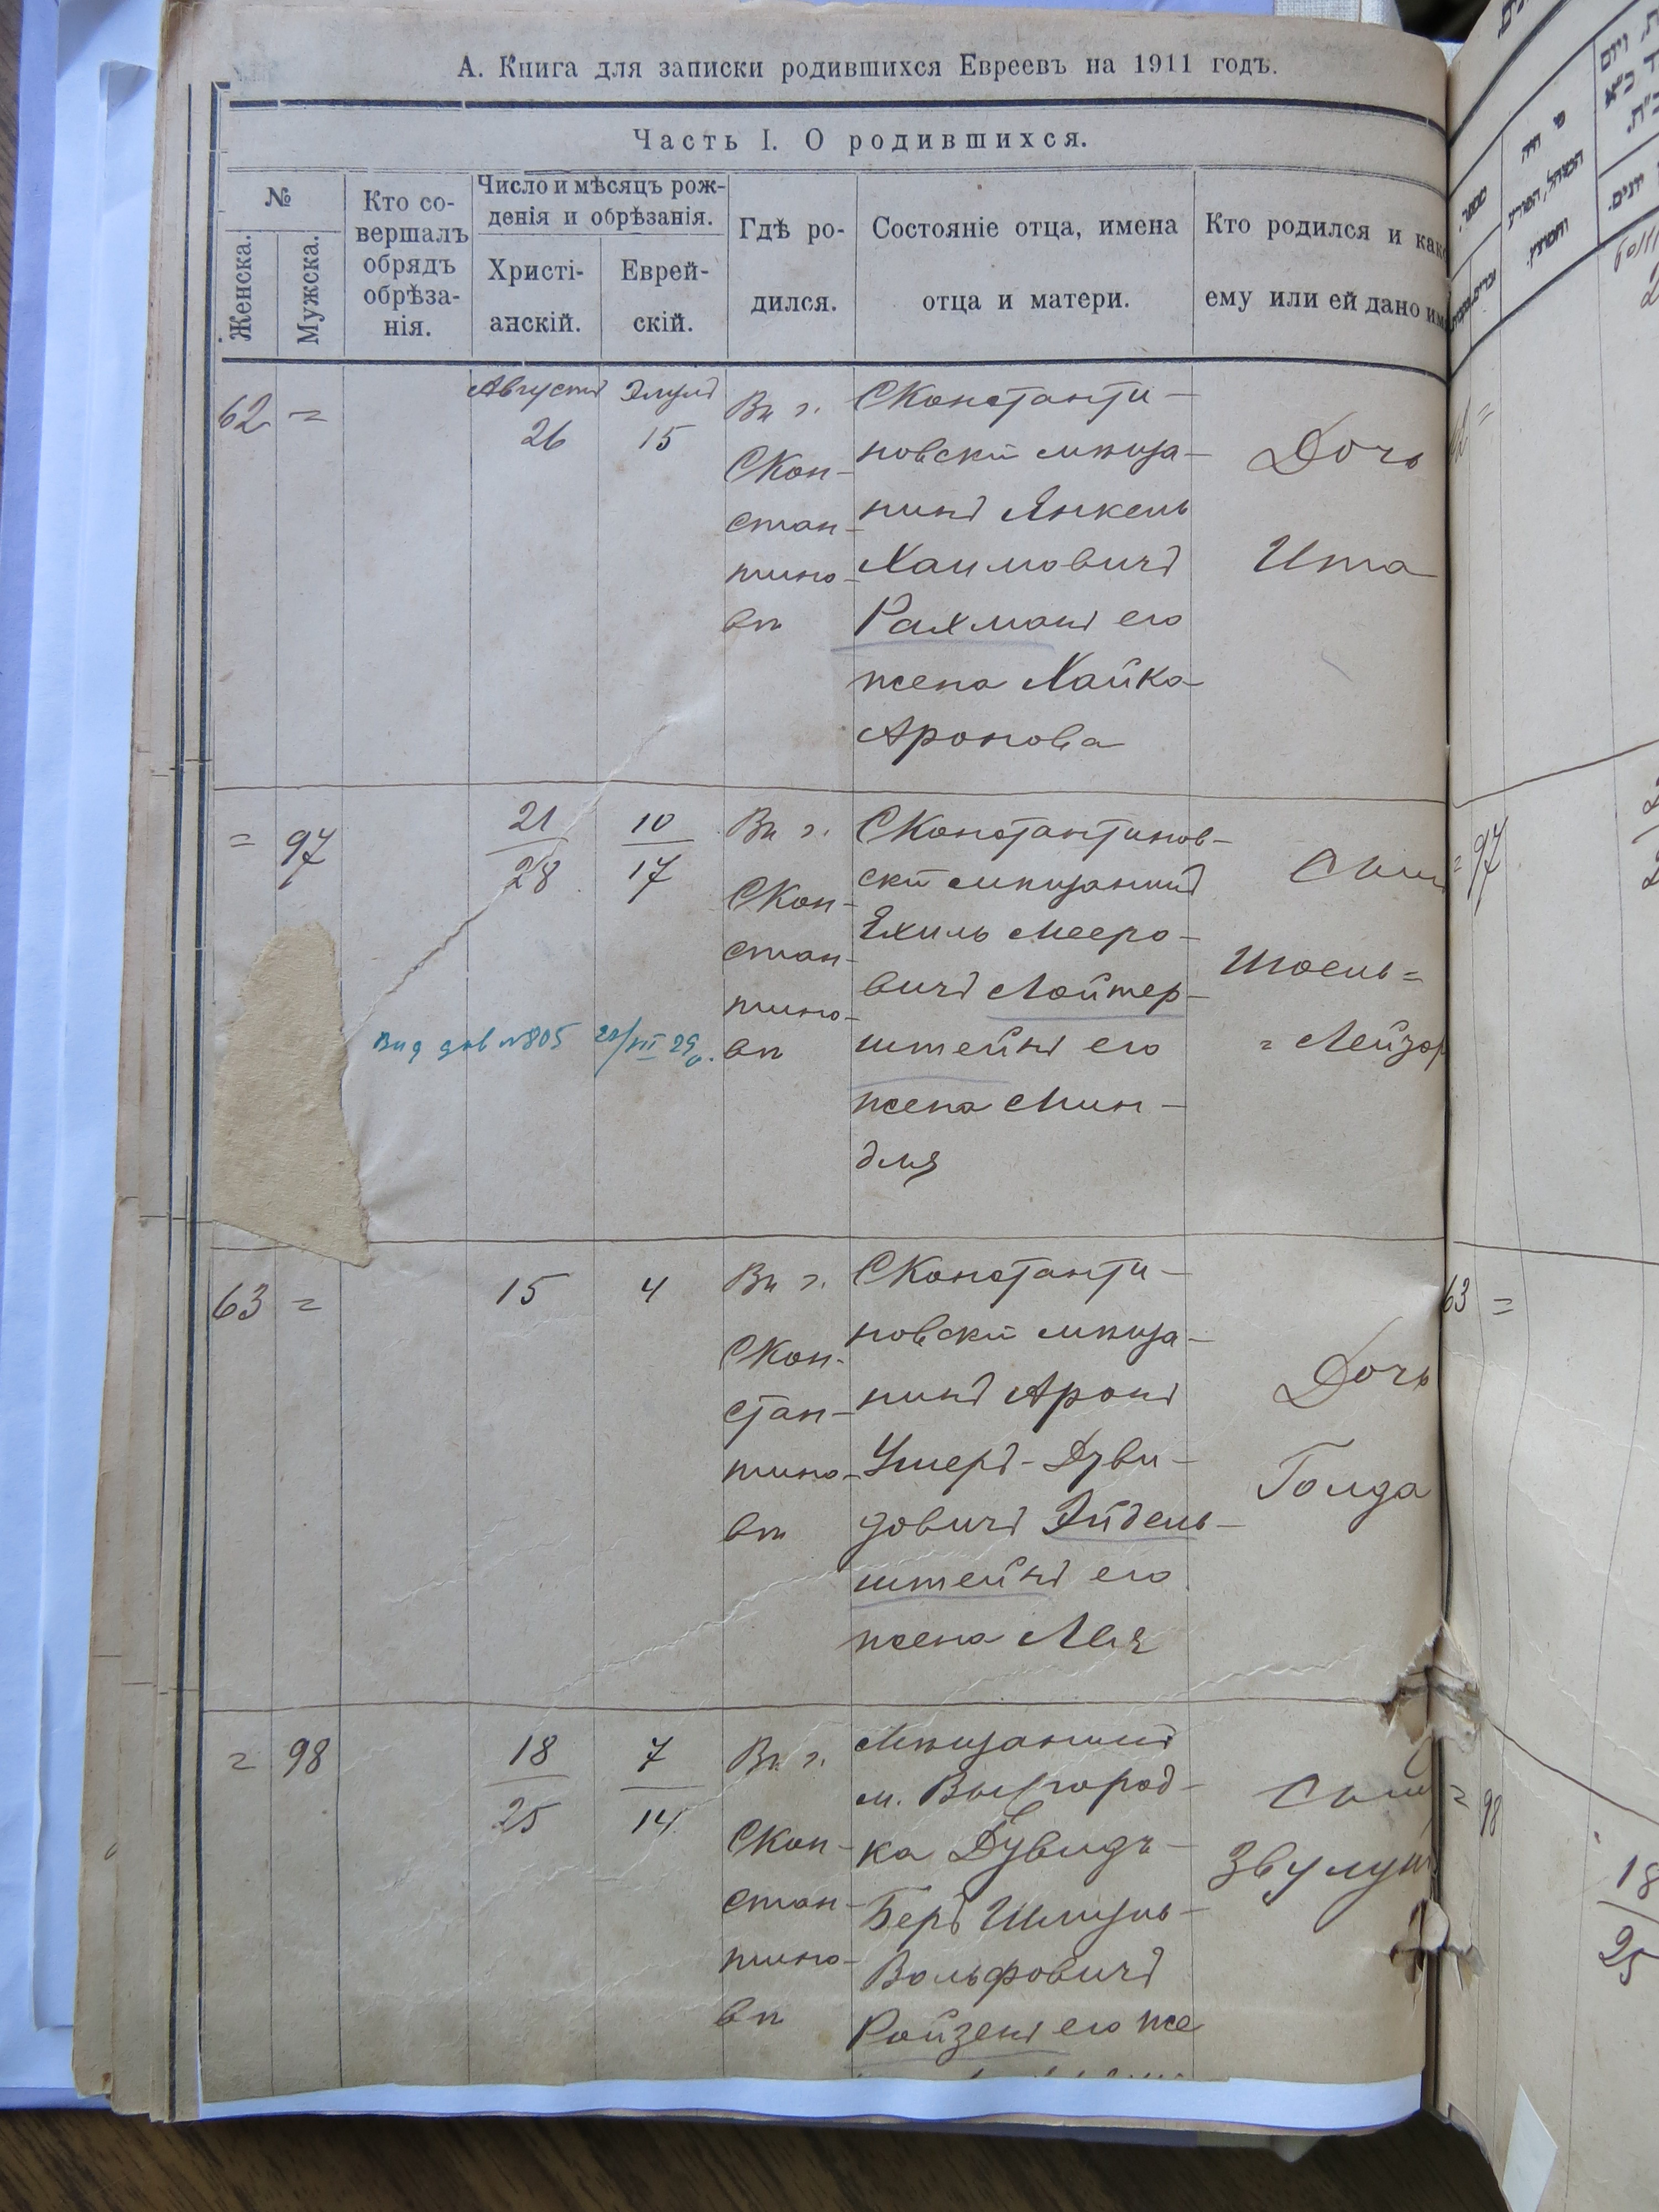 А. Книга для записки родившихся Евреевъ на 1911 годъ.
Часть I. О родившихся.
№
Женска.
Мужска.
Кто со-
вершалъ
обрядъ
обрѣза-
нія.
Число и мѣсяцъ рож-
денія и обрѣзанія.
Христі-
анскій.
Еврей-
скій.
Гдѣ ро-
дился.
Состояніе отца, имена
отца и матери.
Кто родился и како
ему или ей дано им
62 =
Августъ
26
Элулъ
15
Въ г.
СКон-
стан-
тино-
вѣ
СКонстанти-
новскій мѣща-
нинъ Янкель
Хаимовичъ
Рахманъ его
жена Хайка
Аронова
Дочь
Ита
= 97
21
28
10
17
Въ г.
СКон-
стан-
тино-
вѣ
СКонстантинов-
скій мѣщанинъ
Яхиль Мееро-
вичъ Лойтер-
штейнъ его
жена Мин-
для
Сынъ
Шоель=
= Лейзор
№805
63 =
15
4
Въ г.
СКон-
стан-
тино-
вѣ
СКонстанти-
новскій мѣща-
нинъ Аронъ
Ушеръ-Дуви-
довичъ Эйдель-
штейнъ его
жена Лея
Дочь
Голда
= 98
18
25
7
14
Въ г.
СКон-
стан-
тино-
вѣ
Мѣщанинъ
м. Выгород-
ка Дувидъ-
Беръ Шмуль-
Вольфовичъ
Ройзенъ его же
Сынъ
Звулунъ
= 97
63 =
= 98
18
25